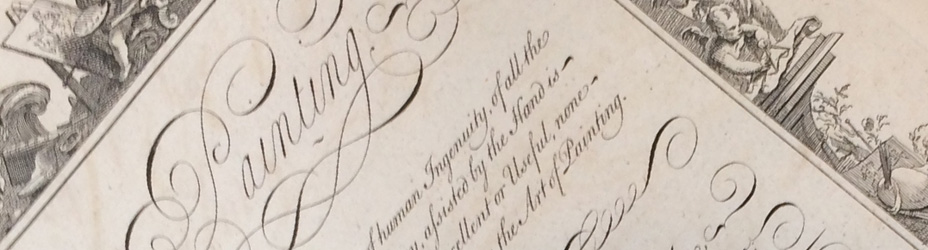 Painting
human Ingenuity, of all the
assisted by the Hand is
or Useful, none
the Art of Painting.